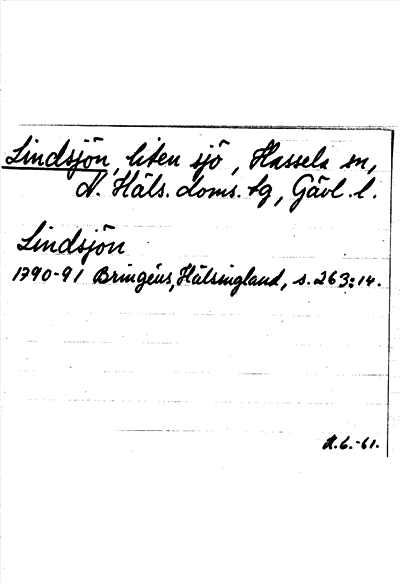 Lindsjön, liten sjö, Hassela sn,
N. Häls. doms. tg, Gävl. l.
Lindsjön
1790-91 Bringéus, Hälsingland, s. 263:14.
H.G.-61.